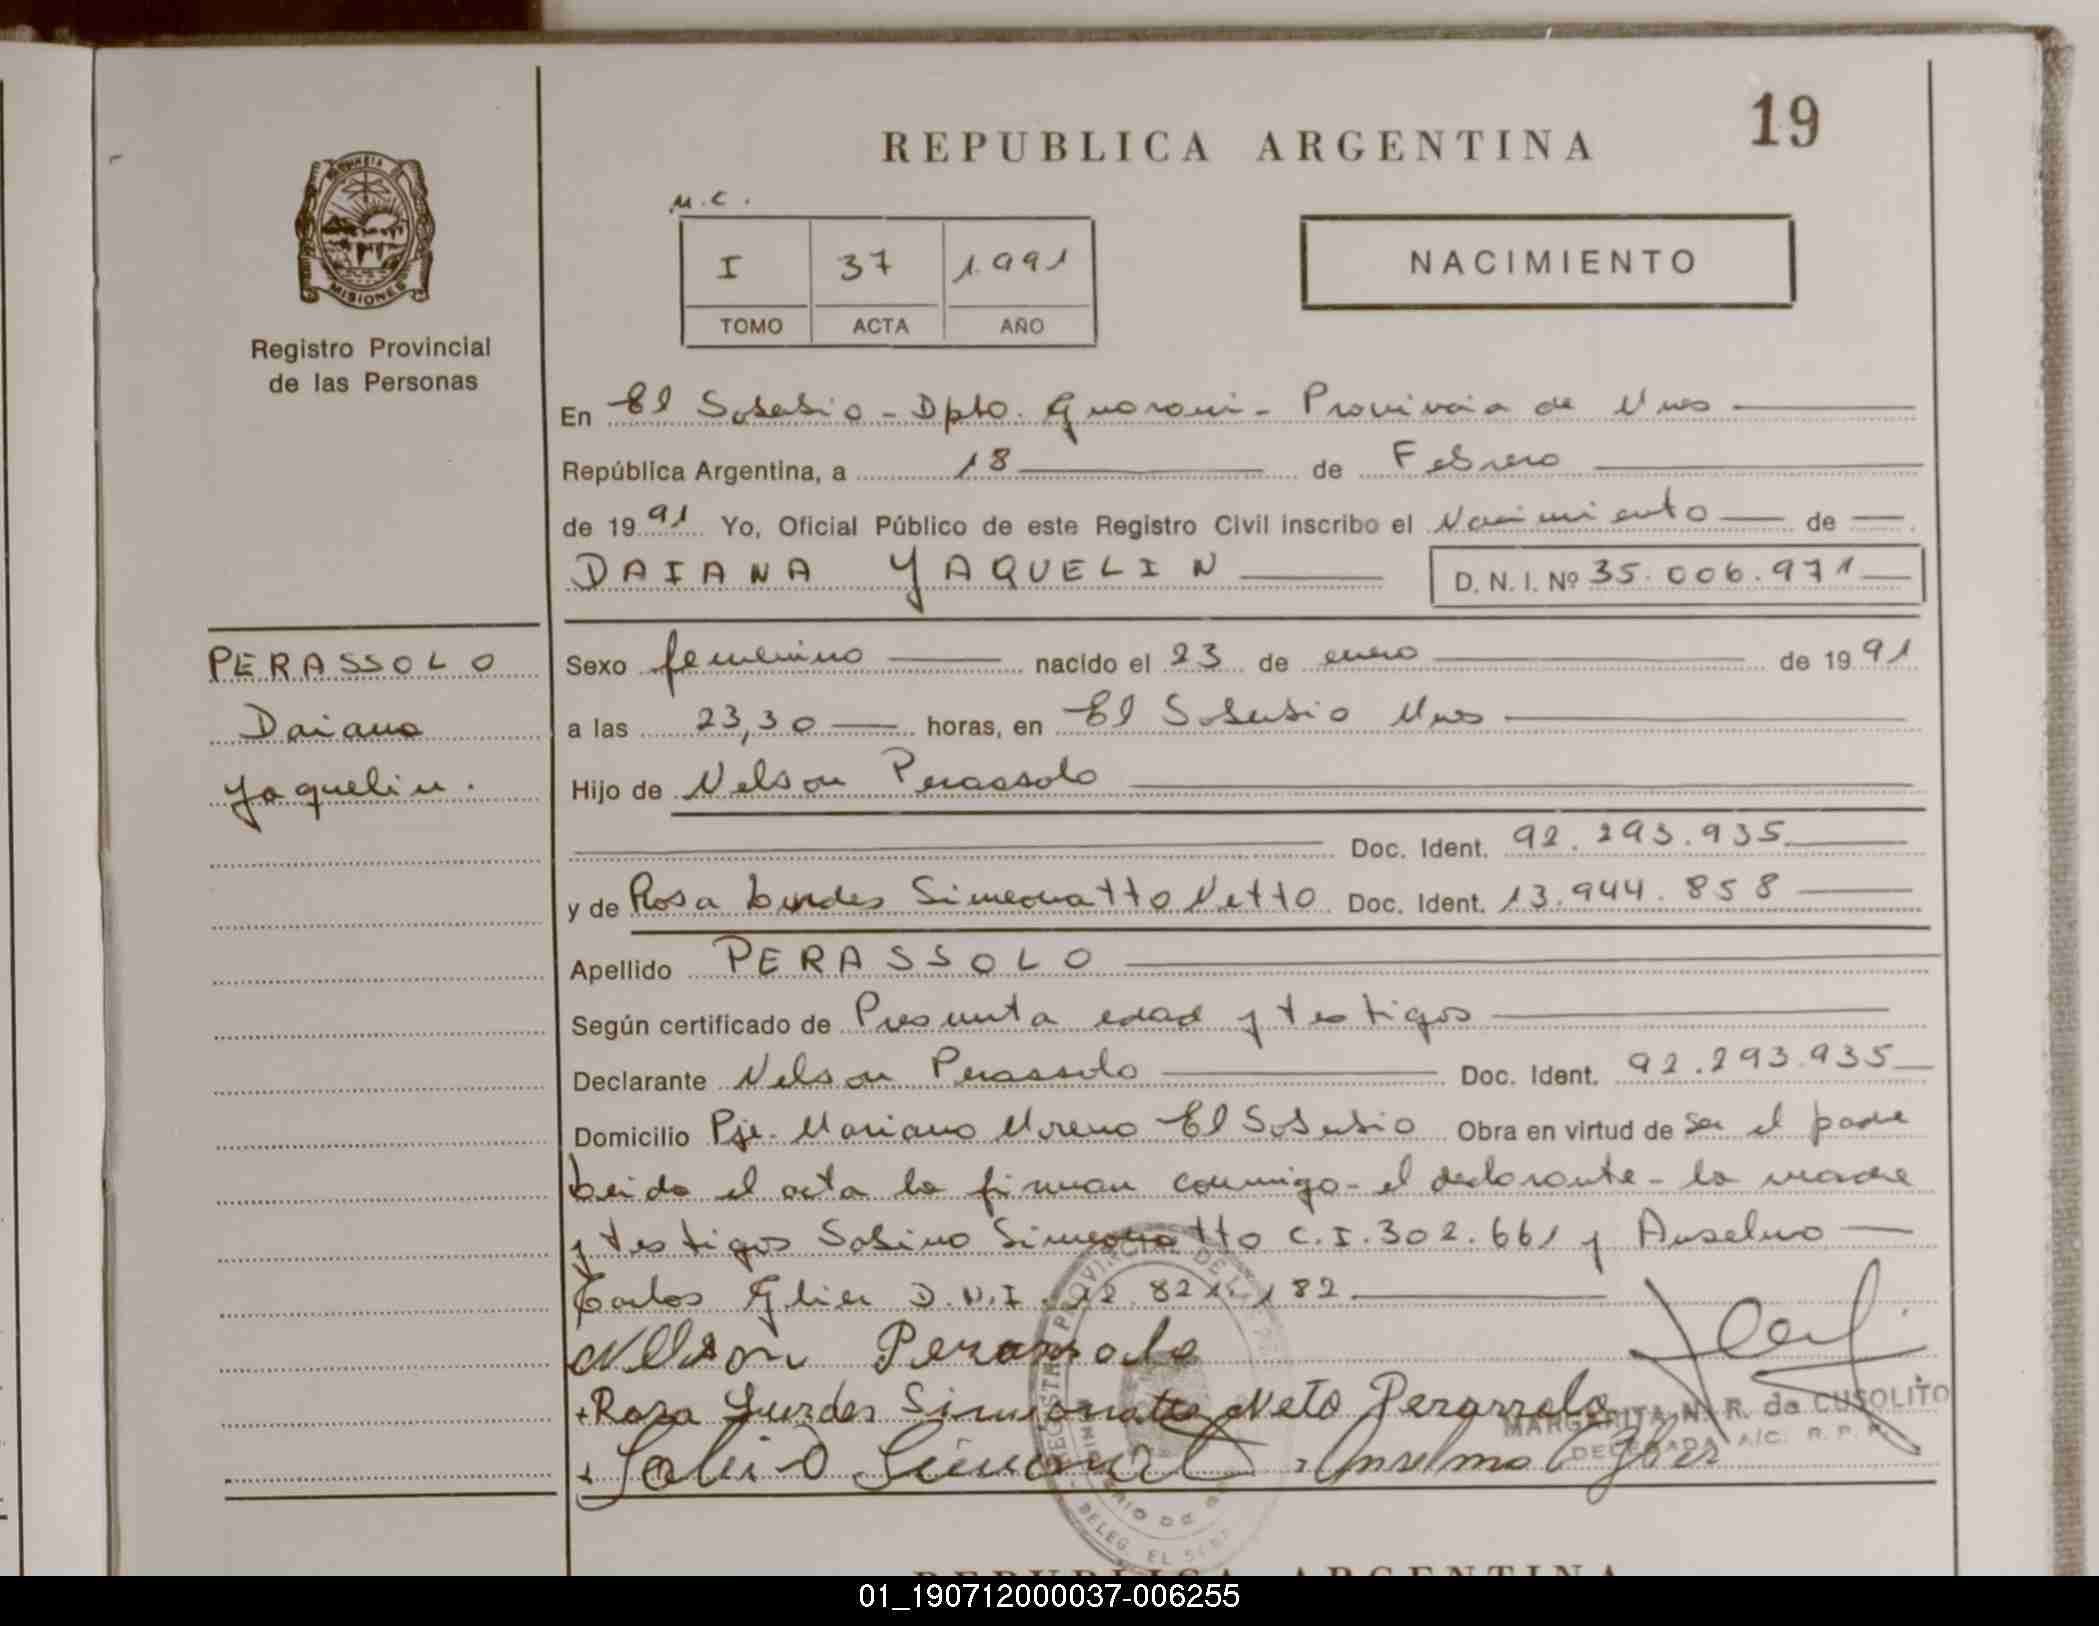 19
REPUBLICA ARGENTINA
M.C.
I 37 1991
TOMO ACTA AÑO
NACIMIENTO
MISIONES
Registro Provincial
de las Personas
En El Soberbio - Dpto. Guarani - Provincia de Mnes
República Argentina, a 18 de Febrero
de 1991 Yo, Oficial Público de este Registro Civil inscribo el Nacimiento de
DAIANA YAQUELIN D. N. I. Nº 35.006.971
PERASSOLO
Daiana
Yaquelin.
Sexo femenino nacido el 23 de enero de 1991
a las 23,30 horas, en El Soberbio Mnes
Hijo de Nelson Perassolo
Doc. Ident. 92.293.935
y de Rosa Lurdes Simeonatto Netto Doc. Ident. 13.944.858
Apellido PERASSOLO
Según certificado de Presunta edad y testigos
Declarante Nelson Perassolo Doc. Ident. 92.293.935
Domicilio Pje. Mariano Moreno El Soberbio Obra en virtud de ser el padre
Leida el acta la firman conmigo - el declarante - la madre
y testigos Sabino Simeonatto C.I. 302.661 y Anselmo
Carlos Glier D.N.I. 12.821.182
Nelson Perassolo
+Rosa Lurdes Simionatto Neto Perassolo
MARGARITA N. R. de CUSOLITO
DELEGADA A/C. R. P. P.
Anselmo Glier
REPUBLICA ARGENTINA
01_190712000037-006255